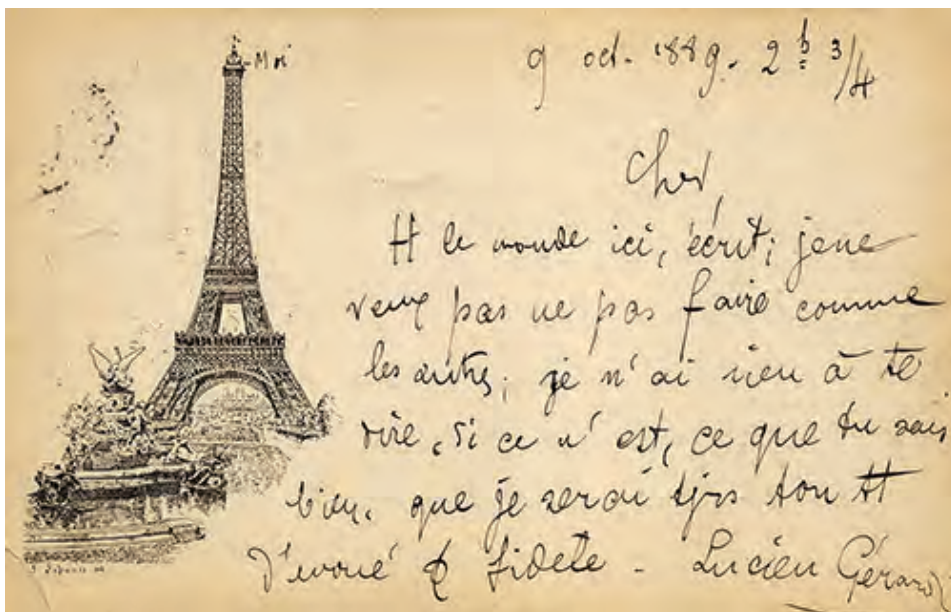 Moi
9 oct. 1889. 2 h 3/4
Cher,
tt le monde ici, écrit; je ne
veux pas ne pas faire comme
les autres; je n'ai rien à te
dire, si ce n'est, ce que tu sais
bien, que je serai tjrs ton tt
dévoué & fidèle - Lucien Gérard